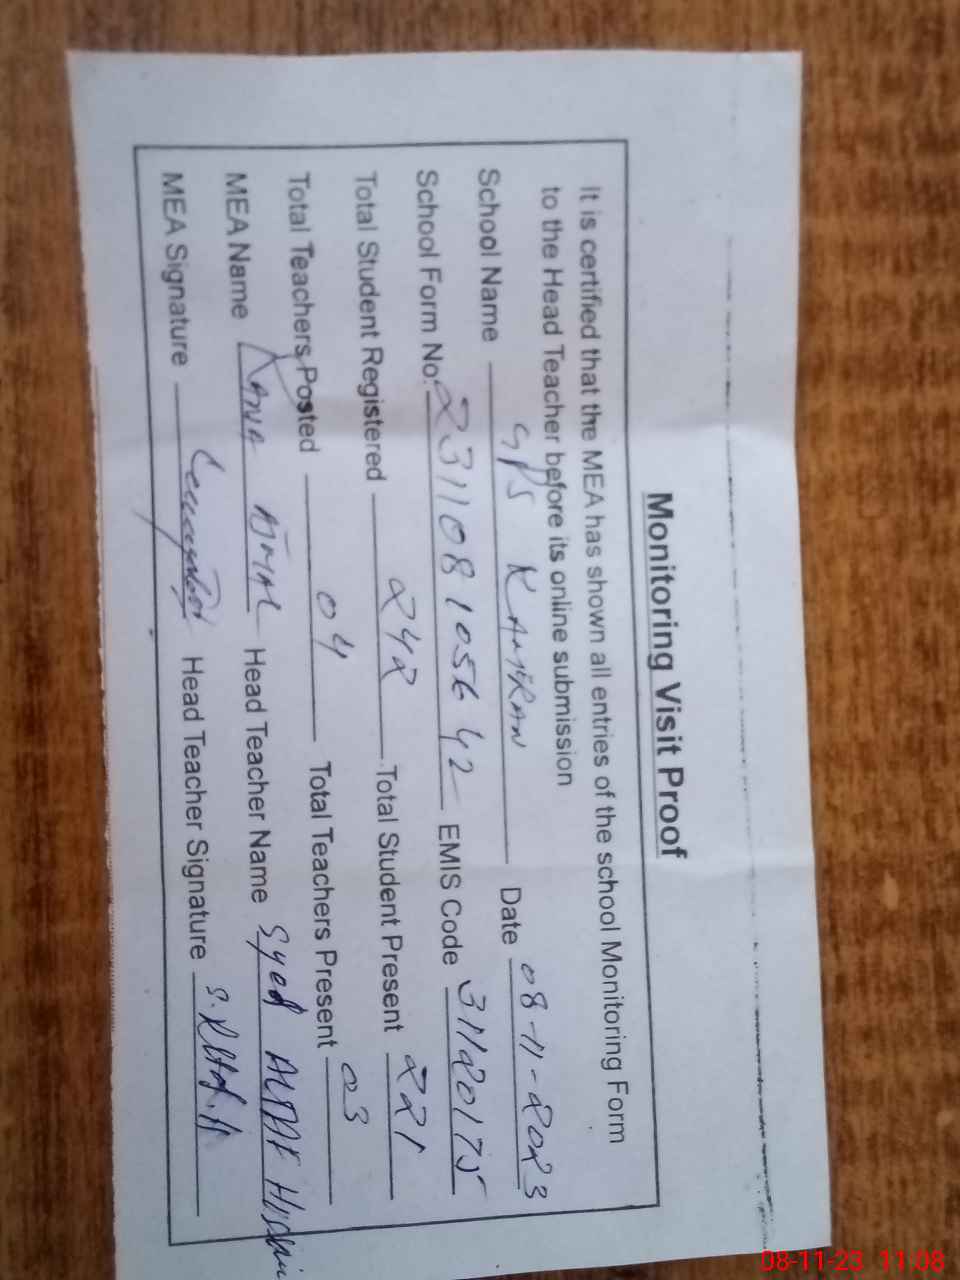 Monitoring Visit Proof
It is certified that the MEA has shown all entries of the school Monitoring Form
to the Head Teacher before its online submission
School Name GPS KAMRAN Date 08-11-2023
School Form No. 23110810564 2 EMIS Code 31120175
Total Student Registered 242 Total Student Present 221
Total Teachers Posted 04 Total Teachers Present 03
MEA Name RANA AJMAL Head Teacher Name Syed ALTAF Hussain
MEA Signature Head Teacher Signature S. Altaf. H
08-11-23 11:08